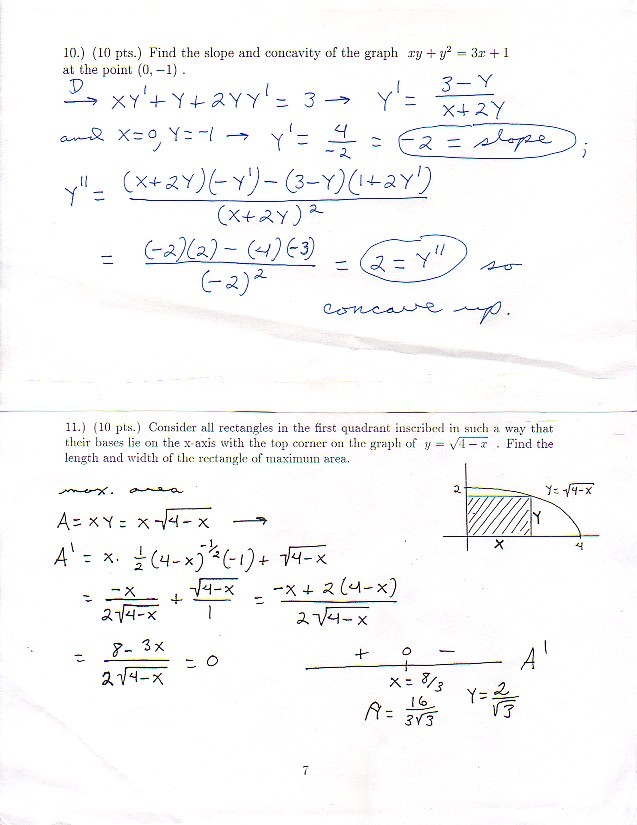 10.) (10 pts.) Find the slope and concavity of the graph xy + y² = 3x + 1
at the point (0, −1) .
D→ XY' + Y + 2YY' = 3 → Y' = (3−Y)/(X+2Y)
and X=0, Y=-1 → Y' = 4/-2 = -2 = slope ;
Y'' = ((X+2Y)(-Y') − (3−Y)(1+2Y'))/(X+2Y)²
= ((-2)(2) − (4)(-3))/(-2)² = 2 = Y'' so
concave up.
11.) (10 pts.) Consider all rectangles in the first quadrant inscribed in such a way that
their bases lie on the x-axis with the top corner on the graph of y = √(4 − x) . Find the
length and width of the rectangle of maximum area.
max. area
2
Y=√(4-X)
Y
X
4
A = XY = X√(4-X) →
A' = X· ½(4-X)^(-½)(-1) + √(4-X)
= -X/(2√(4-X)) + √(4-X)/1 = (-X + 2(4-X))/(2√(4-X))
= (8-3X)/(2√(4-X)) = 0
+ 0 − A'
X = 8/3
Y = 2/√3
A = 16/(3√3)
7